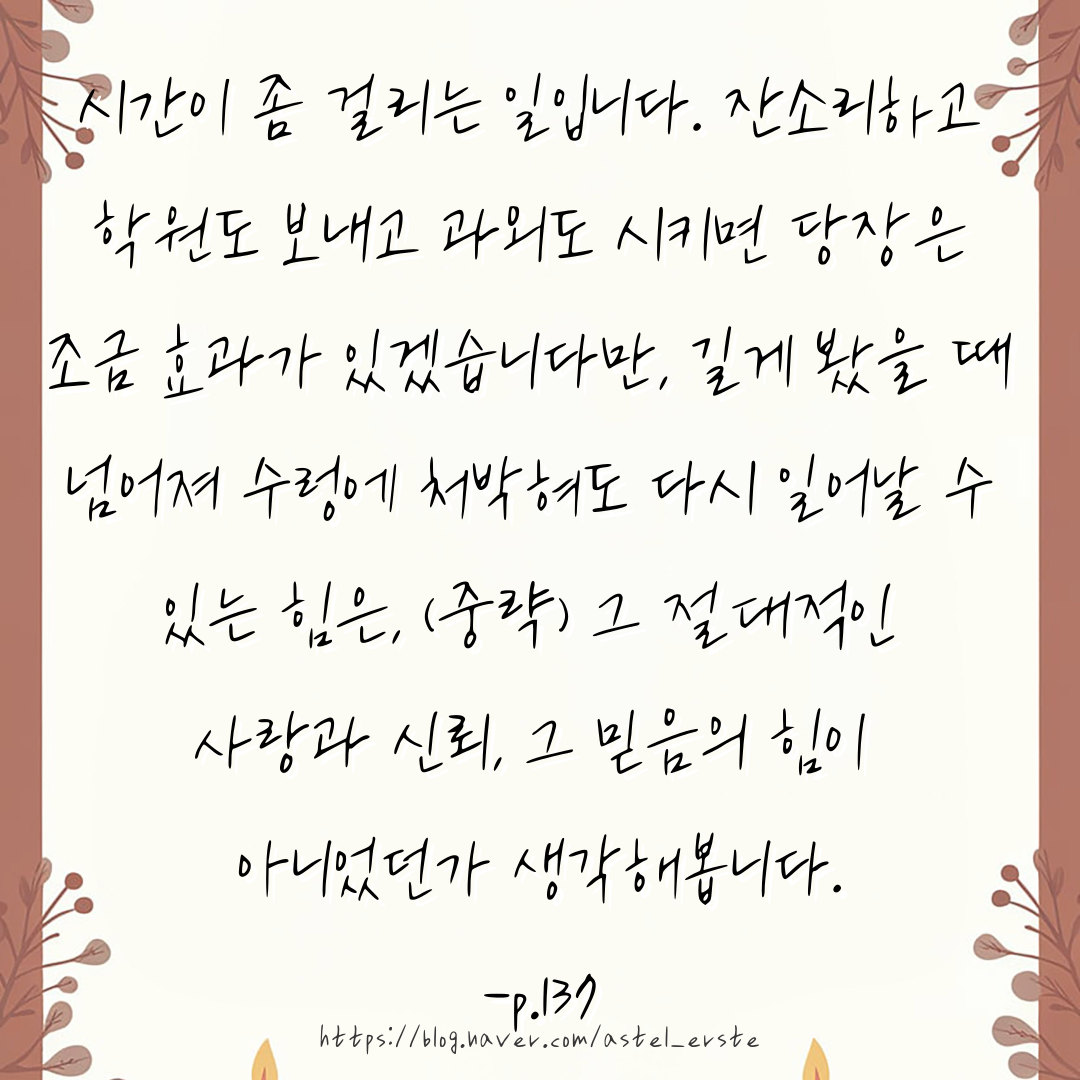 시간이 좀 걸리는 일입니다. 잔소리하고
학원도 보내고 과외도 시키면 당장은
조금 효과가 있겠습니다만, 길게 봤을 때
넘어져 수렁에 처박혀도 다시 일어날 수
있는 힘은, (중략) 그 절대적인
사랑과 신뢰, 그 믿음의 힘이
아니었던가 생각해봅니다.
-p.137
https://blog.naver.com/astel_erste